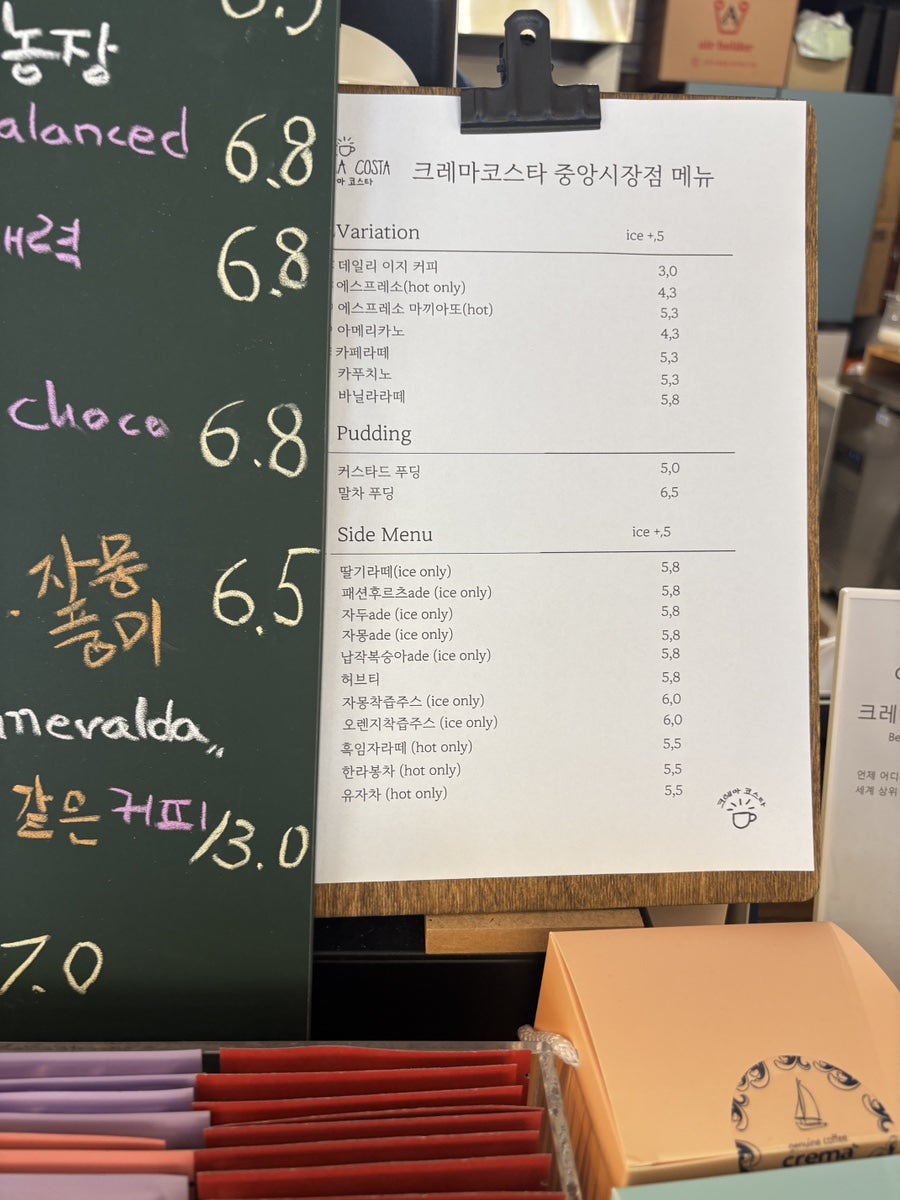 농장
alanced 6.8
6.8
choco 6.8
자몽
풍미 6.5
meralda
같은 커피 13.0
7.0
A COSTA
마 코스타
크레마코스타 중앙시장점 메뉴
Variation ice +,5
데일리 이지 커피 3,0
에스프레소(hot only) 4,3
에스프레소 마끼아또(hot) 5,3
아메리카노 4,3
카페라떼 5,3
카푸치노 5,3
바닐라라떼 5,8
Pudding
커스타드 푸딩 5,0
말차 푸딩 6,5
Side Menu ice +,5
딸기라떼(ice only) 5,8
패션후르츠ade (ice only) 5,8
자두ade (ice only) 5,8
자몽ade (ice only) 5,8
납작복숭아ade (ice only) 5,8
허브티 5,8
자몽착즙주스 (ice only) 6,0
오렌지착즙주스 (ice only) 6,0
흑임자라떼 (hot only) 5,5
한라봉차 (hot only) 5,5
유자차 (hot only) 5,5
크레마 코스타
air holder
크레
Be
언제 어디
세계 상위
genuine coffee
crema